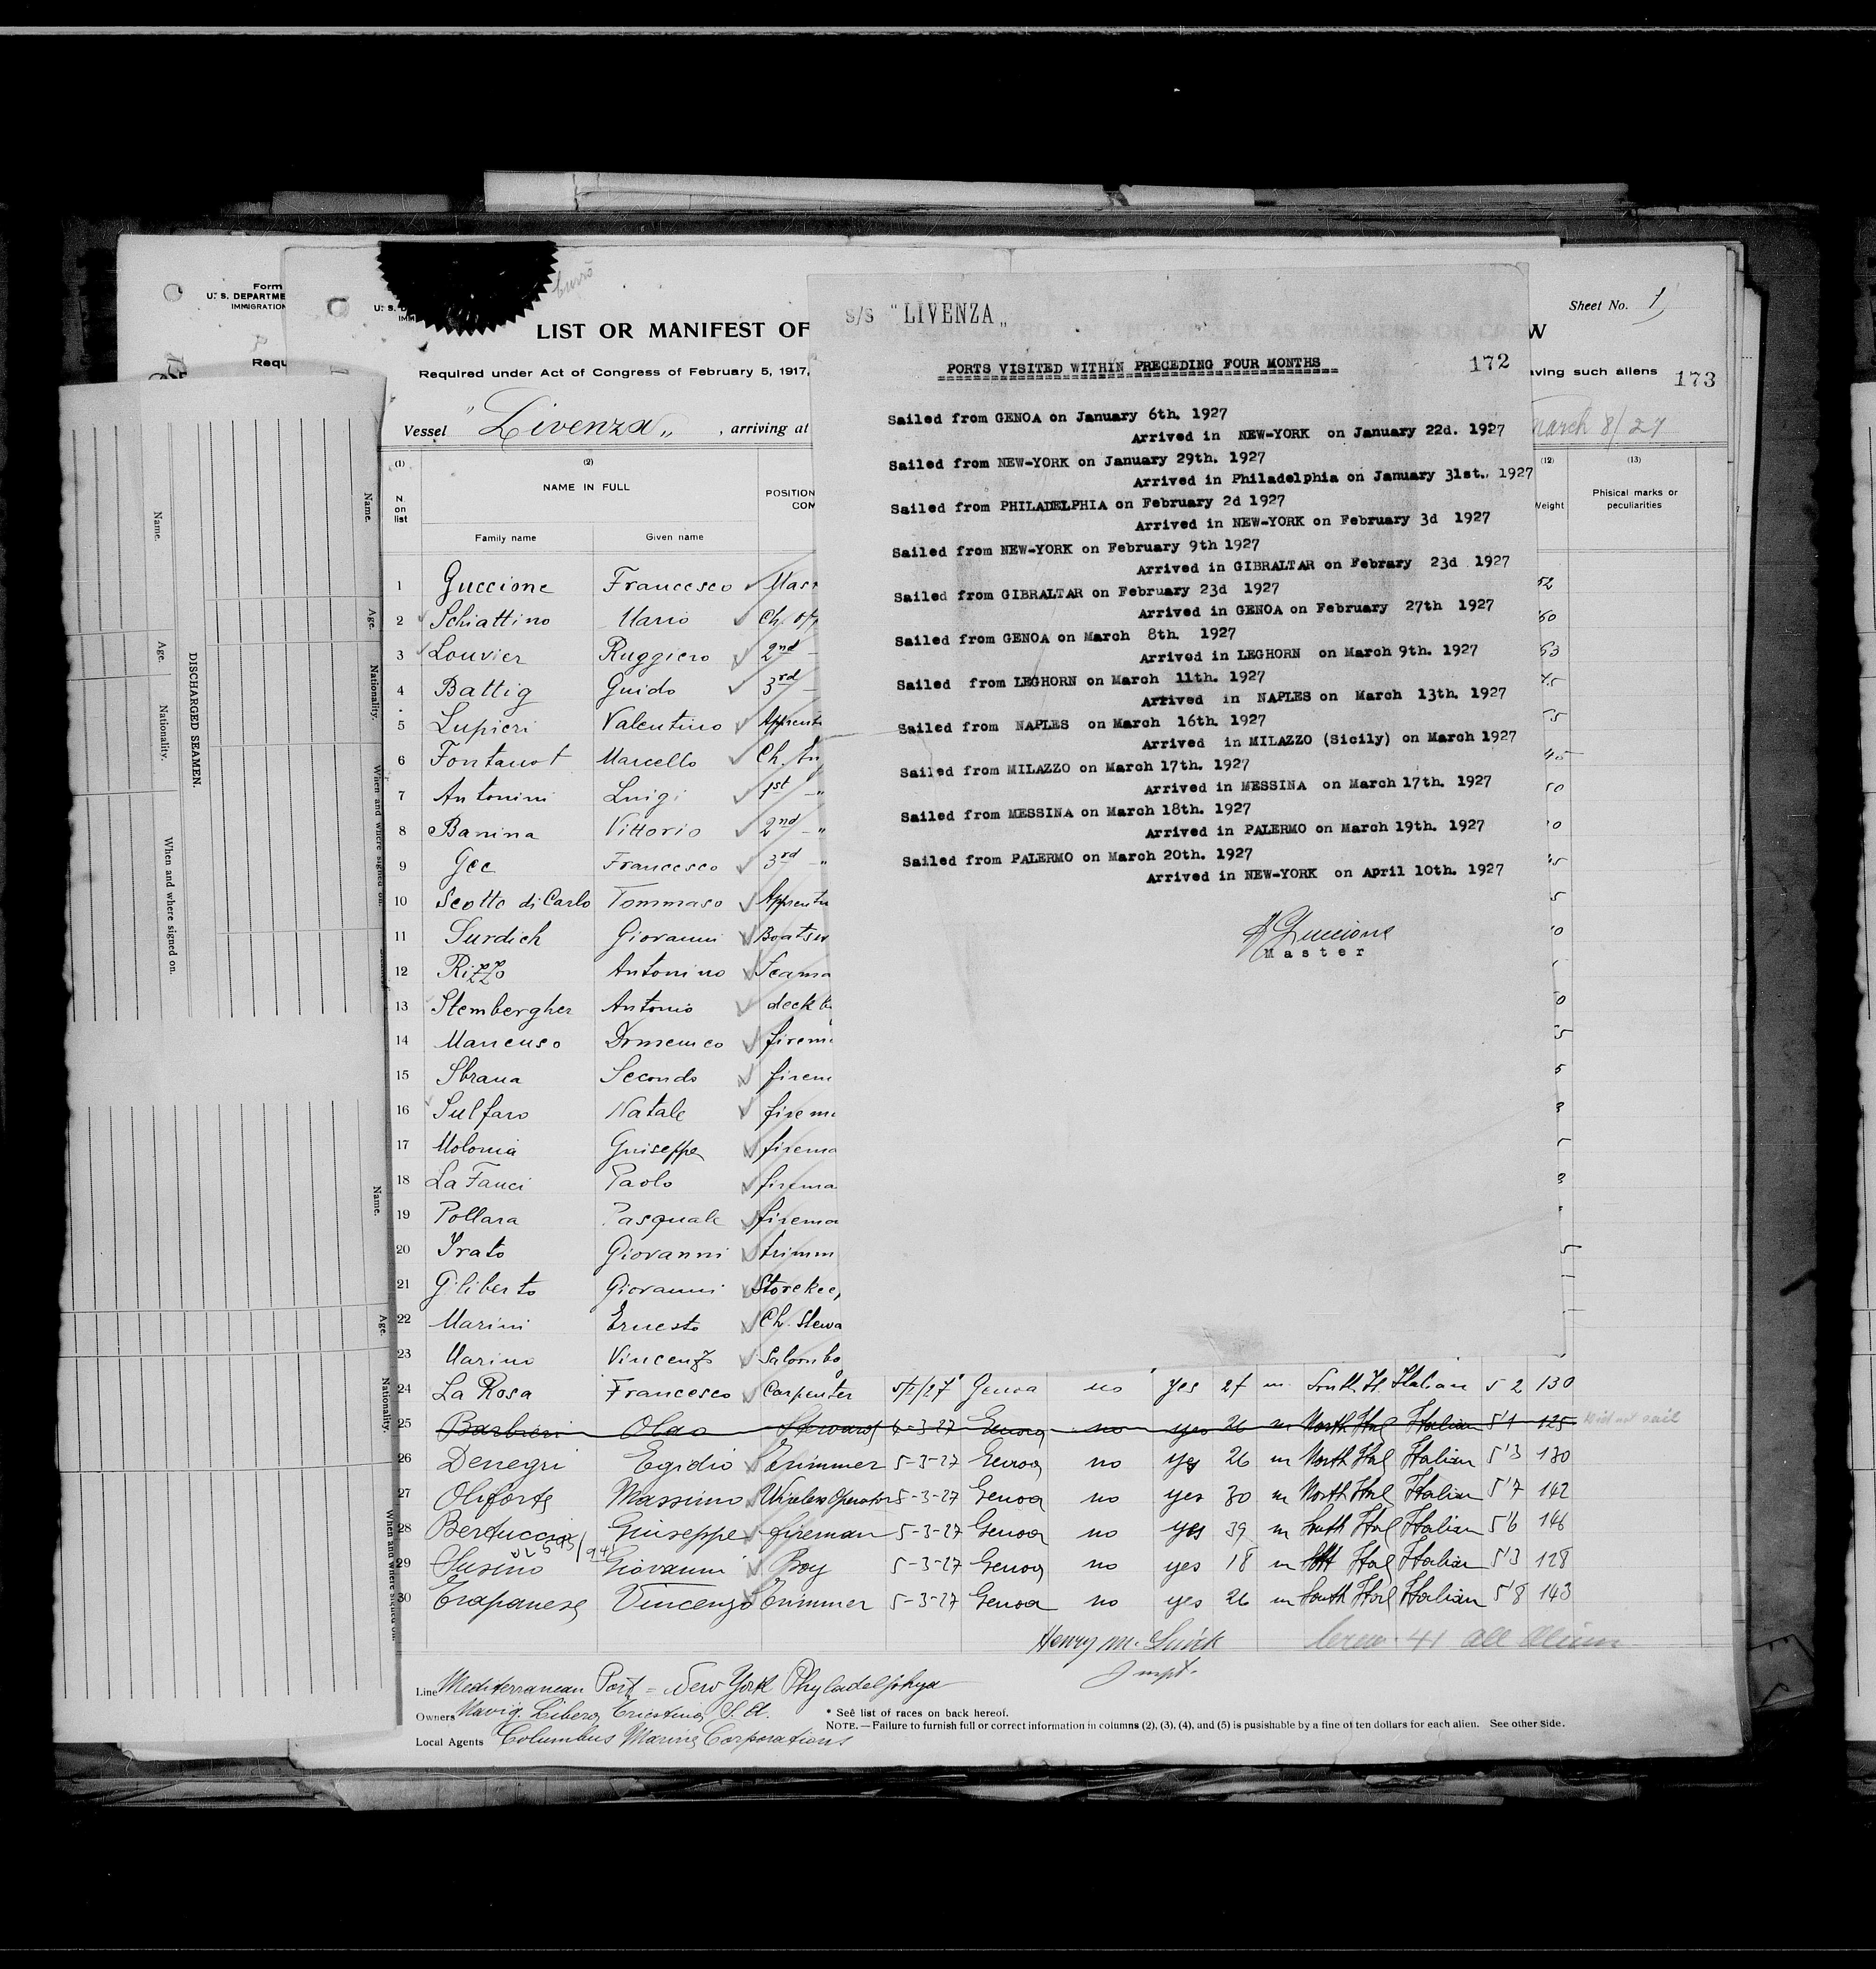 Form
U. S. DEPARTME
IMMIGRATION
Requ
U. S. D
IMM
LIST OR MANIFEST OF
W
Sheet No. 1
Required under Act of Congress of February 5, 1917,
aving such aliens
173
Vessel "Livenza" , arriving at
March 8/27
(1) (2) (12) (13)
N on list
NAME IN FULL
POSITION
COM
Weight
Phisical marks or peculiarities
Family name Given name
s/s "LIVENZA"
172
PORTS VISITED WITHIN PRECEDING FOUR MONTHS
Sailed from GENOA on January 6th. 1927
Arrived in NEW-YORK on January 22d. 1927
Sailed from NEW-YORK on January 29th. 1927
Arrived in Philadelphia on January 31st., 1927
Sailed from PHILADELPHIA on February 2d 1927
Arrived in NEW-YORK on February 3d 1927
Sailed from NEW-YORK on February 9th 1927
Arrived in GIBRALTAR on Febrary 23d 1927
Sailed from GIBRALTAR on February 23d 1927
Arrived in GENOA on February 27th 1927
Sailed from GENOA on March 8th. 1927
Arrived in LEGHORN on March 9th. 1927
Sailed from LEGHORN on March 11th. 1927
Arrived in NAPLES on March 13th. 1927
Sailed from NAPLES on March 16th. 1927
Arrived in MILAZZO (Sicily) on March 1927
Sailed from MILAZZO on March 17th. 1927
Arrived in MESSINA on March 17th. 1927
Sailed from MESSINA on March 18th. 1927
Arrived in PALERMO on March 19th. 1927
Sailed from PALERMO on March 20th. 1927
Arrived in NEW-YORK on April 10th. 1927
Guccione
Master
1 Guccione Francesco Mast
2 Schiattino Mario Ch. off
3 Louvier Ruggiero 2nd
4 Battig Guido 3rd
5 Lupieri Valentino Apprenti
6 Fontanot Marcello Ch.
7 Antonini Luigi 1st
8 Banina Vittorio 2nd
9 Gee Francesco 3rd
10 Scotto di Carlo Tommaso Apprenti
11 Surdich Giovanni Boatsw
12 Rizzo Antonino Seama
13 Stembergher Antonio deck b
14 Mancuso Domenico firem
15 Sbrana Secondo firem
16 Sulfaro Natale firem
17 Molonia Guiseppe firema
18 La Fauci Paolo firema
19 Pollara Pasquale firema
20 Irato Giovanni trimm
21 Giliberto Giovanni Storekee
22 Marini Ernesto Ch. Stewa
23 Marino Vincenzo Salon bo
24 La Rosa Francesco Carpenter Genoa no yes 27 m South It. Italian 5 2 130
25 Barbieri Olao Steward 6-3-27 Genoa no yes 26 m North Ital Italian 5'1 125 Did not sail
26 Denegri Egidio Trimmer 5-3-27 Genoa no yes 26 m North Ital Italian 5'3 130
27 Oliforte Massimo Wireless Operator 5-3-27 Genoa no yes 30 m North Ital Italian 5'7 142
28 Bertuccio Giuseppe fireman 5-3-27 Genoa no yes 39 m South Ital Italian 5'6 146
29 Olusino Giovanni Boy 5-3-27 Genoa no yes 18 m Ital Italian 5'3 128
30 Trapanese Vincenzo Trimmer 5-3-27 Genoa no yes 26 m South Ital Italian 5'8 143
Henry M.
Inspt.
Crew 41 all Aliens
Line Mediterranean Port = New York Phyladelphya
Owners Navig. Libera Triestina S. A.
Local Agents Columbus Marine Corporations
* See list of races on back hereof.
NOTE.—Failure to furnish full or correct information in columns (2), (3), (4), and (5) is pusishable by a fine of ten dollars for each alien. See other side.
DISCHARGED SEAMEN.
Name.
Age.
Nationality.
When and where signed on.
Name.
Age.
Nationality.
When and where signed on.
Name.
Age.
Nationality.
When and where signed on.